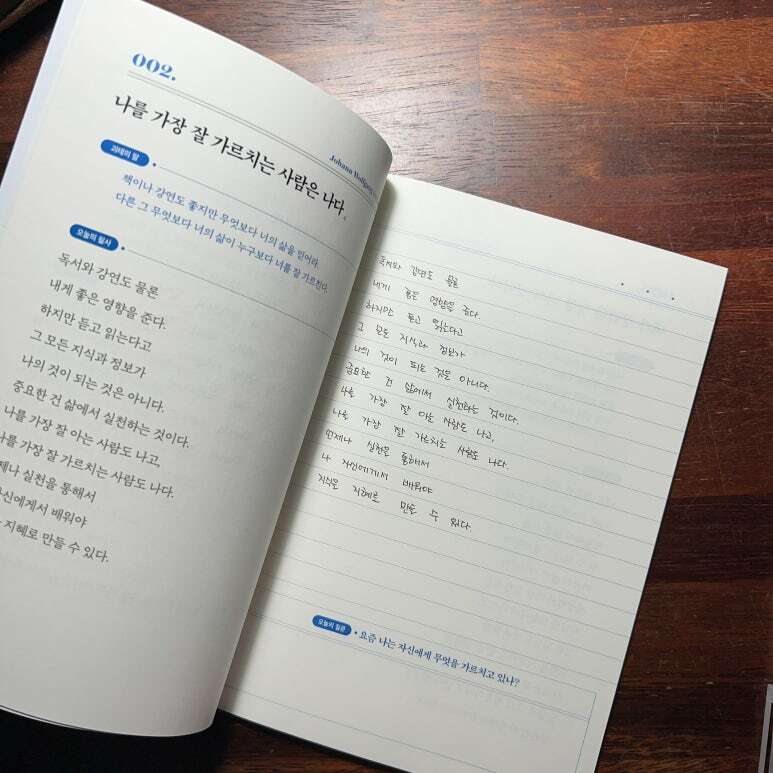 002.
나를 가장 잘 가르치는 사람은 나다.
Johann Wolfgang
괴테의 말
책이나 강연도 좋지만 무엇보다 너의 삶을 믿어라.
다른 그 무엇보다 너의 삶이 누구보다 너를 잘 가르친다.
오늘의 필사
독서와 강연도 물론
내게 좋은 영향을 준다.
하지만 듣고 읽는다고
그 모든 지식과 정보가
나의 것이 되는 것은 아니다.
중요한 건 삶에서 실천하는 것이다.
나를 가장 잘 아는 사람도 나고,
나를 가장 잘 가르치는 사람도 나다.
실천을 통해서
배워야
지혜로 만들 수 있다.
독서와 강연도 물론
내게 좋은 영향을 준다.
하지만 듣고 읽는다고
그 모든 지식과 정보가
나의 것이 되는 것은 아니다.
중요한 건 삶에서 실천하는 것이다.
나를 가장 잘 아는 사람도 나고,
나를 가장 잘 가르치는 사람도 나다.
언제나 실천을 통해서
나 자신에게서 배워야
지식을 지혜로 만들 수 있다.
오늘의 질문
요즘 나는 자신에게 무엇을 가르치고 있나?